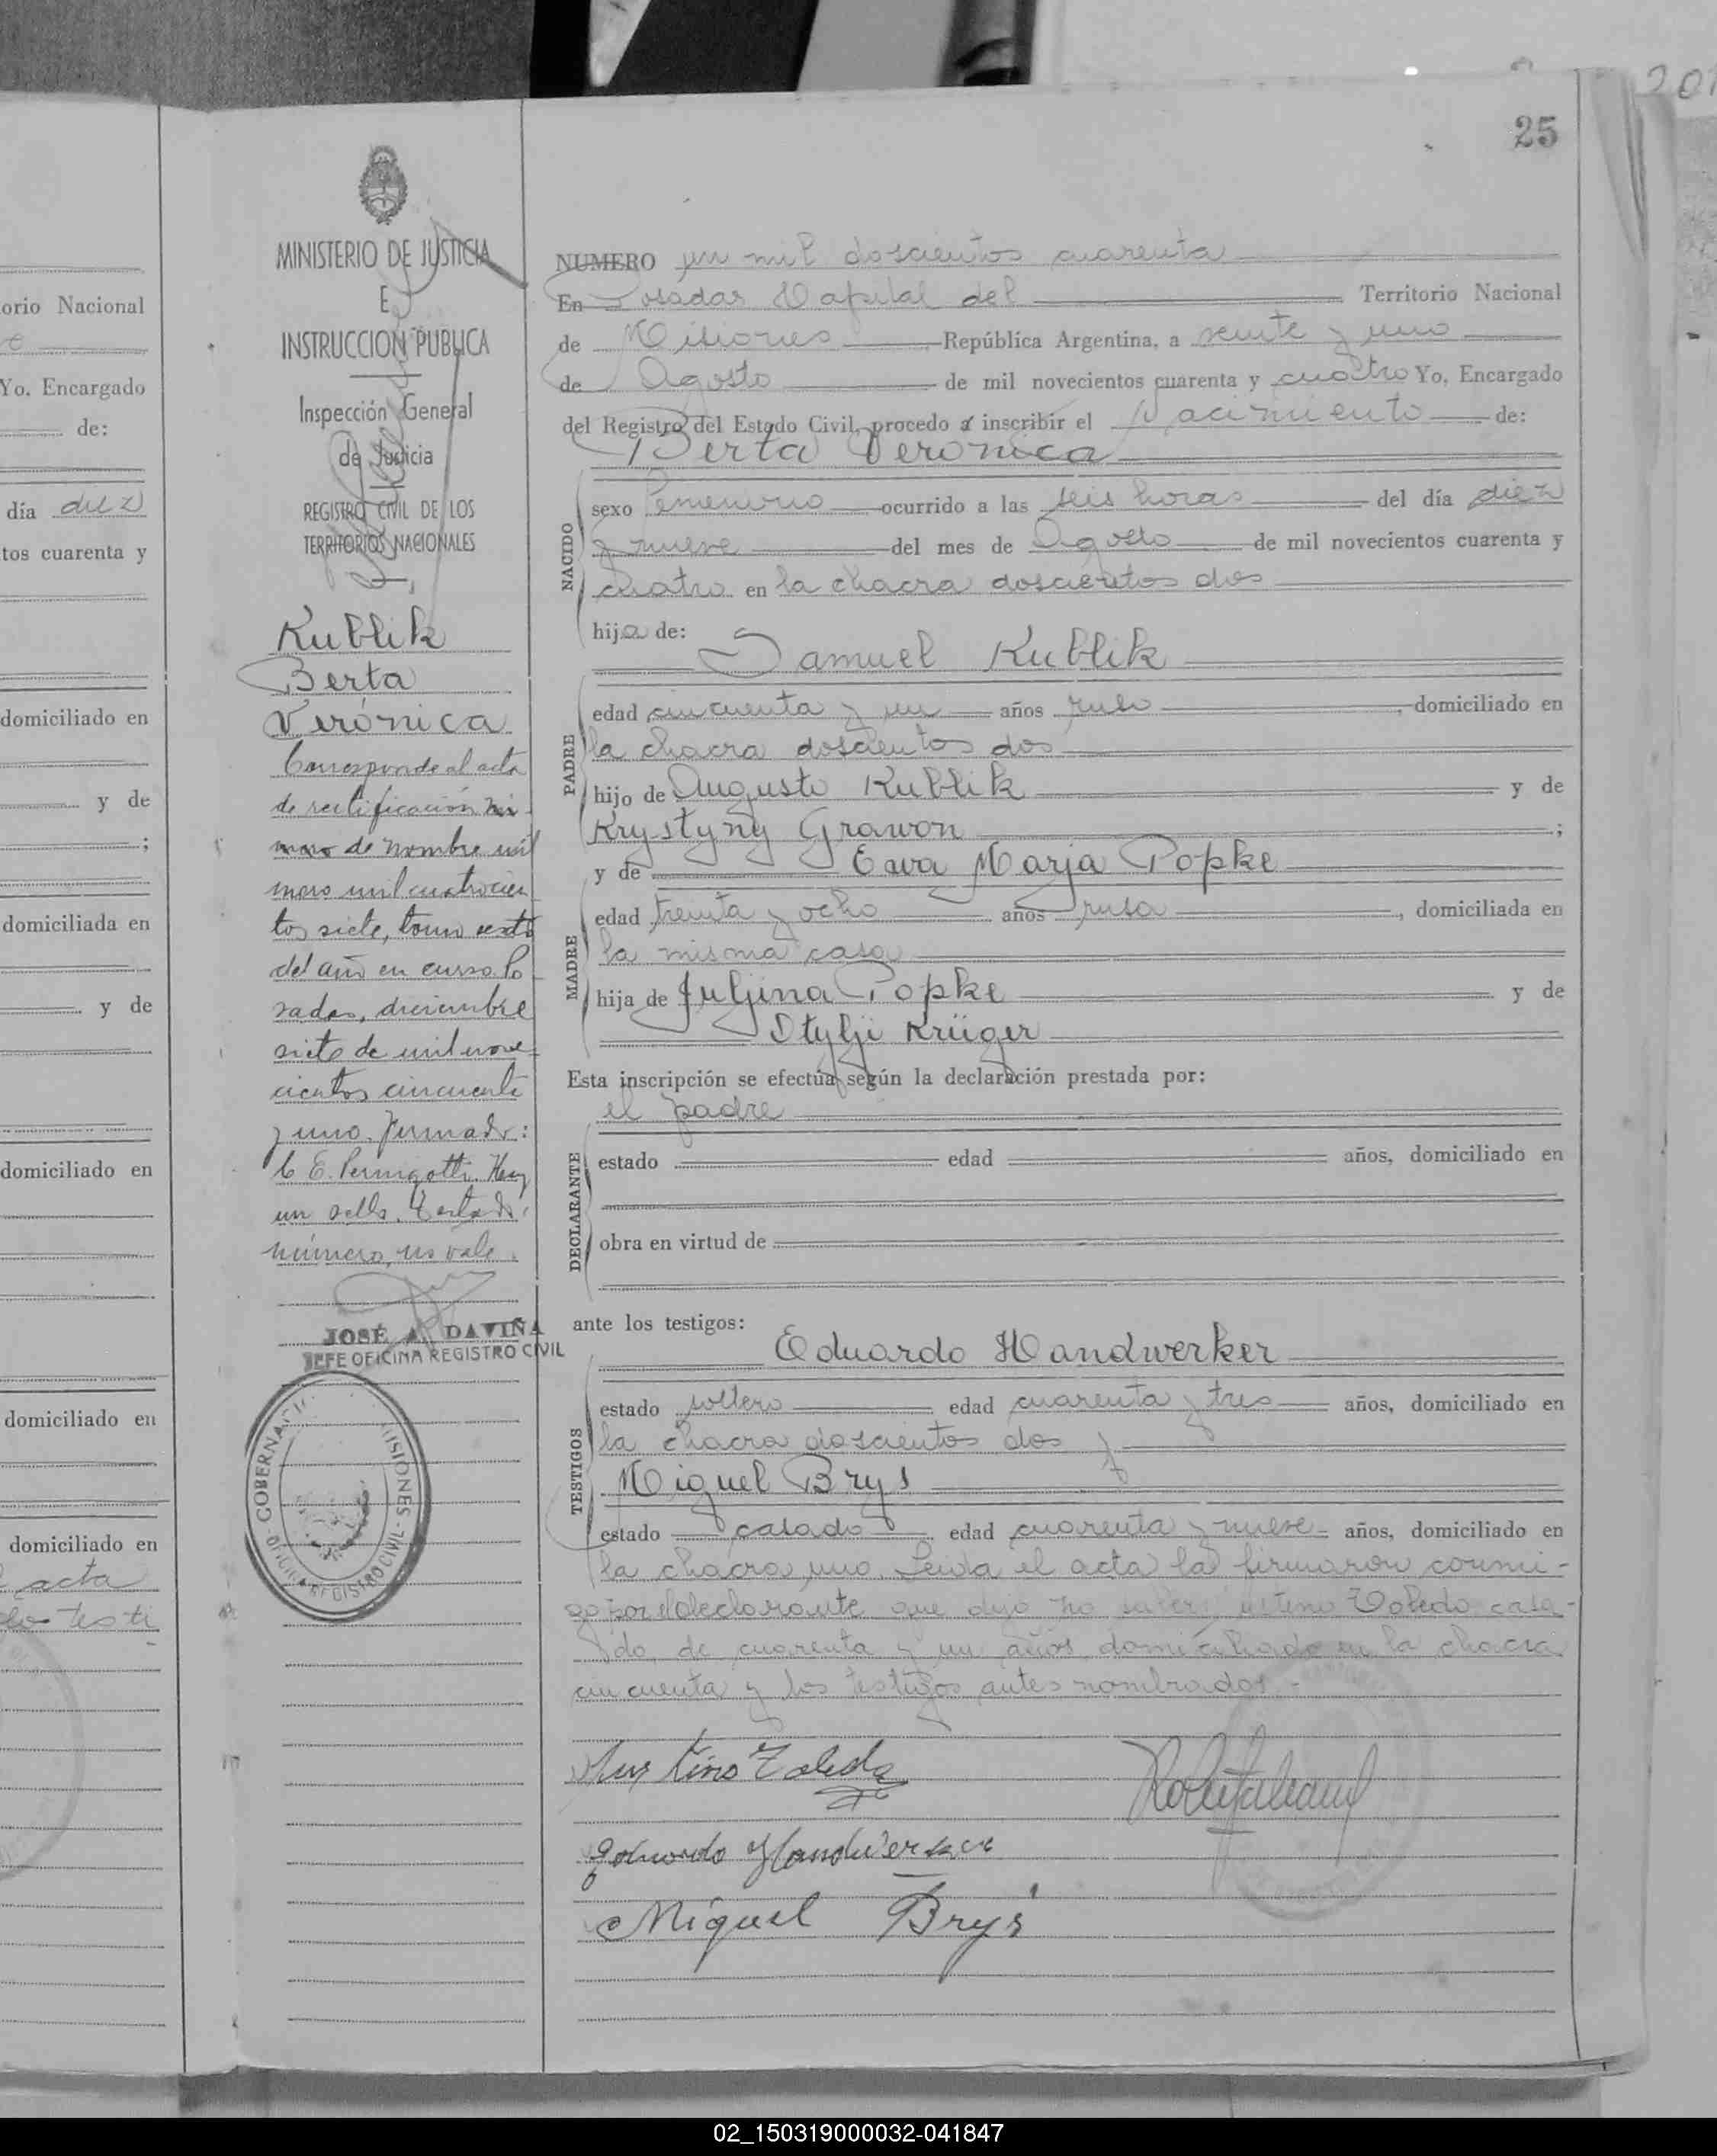 201
25
orio Nacional
Yo. Encargado
de:
día diez
tos cuarenta y
domiciliado en
y de
;
domiciliada en
y de
domiciliado en
domiciliado en
domiciliado en
acta
testi
MINISTERIO DE JUSTICIA
E
INSTRUCCION PUBLICA
Inspección General
de Justicia
REGISTRO CIVIL DE LOS
TERRITORIOS NACIONALES
Kublik
Berta
Verónica
Corresponde al acta
de rectificación nú-
mero de nombre nú
mero mil cuatrocien
tos siete, tomo sexto
del año en curso. Po
sadas, diciembre
siete de mil nove-
cientos cincuenta
y uno. Firmado:
C. E. Pernigotti. Hay
un sello. Testado:
número, no vale.
JOSÉ A. DAVIÑA
JEFE OFICINA REGISTRO CIVIL
GOBERNACI MISIONES
OFICINA REGISTRO CIVIL
NUMERO un mil doscientos cuarenta
En Posadas Capital del Territorio Nacional
de Misiones República Argentina, a veinte y uno
de Agosto de mil novecientos cuarenta y cuatro Yo, Encargado
del Registro del Estado Civil, procedo a inscribir el Nacimiento de:
Berta Veronica
NACIDO
sexo femenino ocurrido a las seis horas del día diez
y nueve del mes de Agosto de mil novecientos cuarenta y
cuatro en la chacra doscientos dos
hija de:
Samuel Kublik
PADRE
edad cincuenta y un años ruso, domiciliado en
la chacra doscientos dos
hijo de Augusto Kublik y de
Krystyny Grawon ;
y de Ewa Marja Popke
MADRE
edad treinta y ocho años rusa, domiciliada en
la misma casa
hija de Juljina Popke y de
Otylji Krüger
Esta inscripción se efectúa según la declaración prestada por:
el padre
DECLARANTE
estado edad años, domiciliado en
obra en virtud de
ante los testigos:
Eduardo Handwerker
TESTIGOS
estado soltero edad cuarenta y tres años, domiciliado en
la chacra doscientos dos y
Miguel Brys
estado casado edad cuarenta y nueve años, domiciliado en
la chacra uno. Leida el acta la firmaron conmi-
go por el declarante que dijo no saber, Toledo casa-
do, de cuarenta y un años, domiciliado en la chacra
cincuenta y los testigos antes nombrados.-
Toledo
Eduardo Handwerker
Miguel Brys
02_150319000032-041847